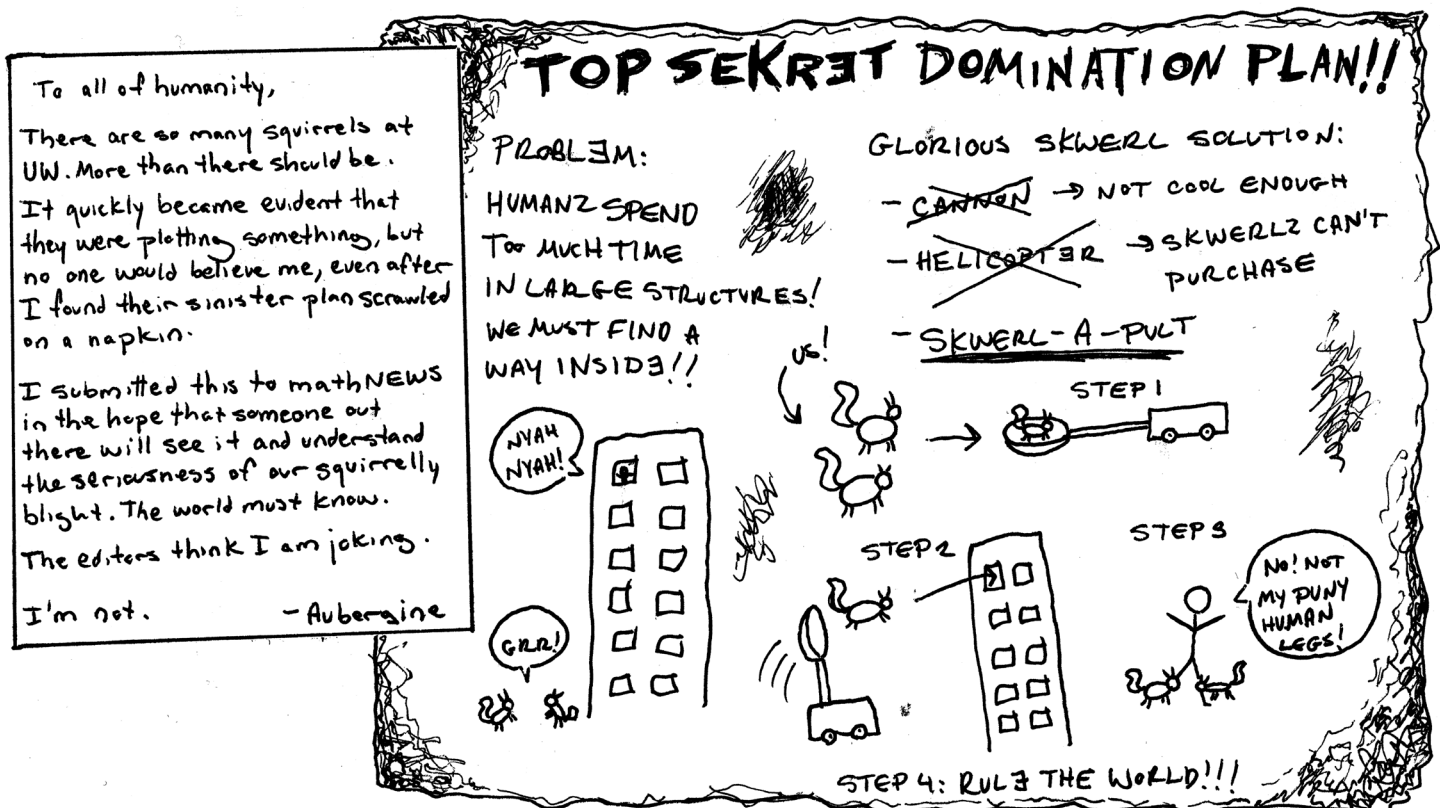 To all of humanity,
There are so many squirrels at
UW. More than there should be.
It quickly became evident that
they were plotting something, but
no one would believe me, even after
I found their sinister plan scrawled
on a napkin.
I submitted this to mathNEWS
in the hope that someone out
there will see it and understand
the seriousness of our squirrelly
blight. The world must know.
The editors think I am joking.
I'm not. - Aubergine
TOP SEKRƎT DOMINATION PLAN!!
PROBLƎM:
HUMANZ SPEND
TOO MUCH TIME
IN LARGE STRUCTURES!
WE MUST FIND A
WAY INSIDƎ!!
NYAH
NYAH!
GRR!
GLORIOUS SKWERL SOLUTION:
- CANNON → NOT COOL ENOUGH
- HELICOPTƎR → SKWERLZ CAN'T
PURCHASE
- SKWERL-A-PULT
US!
STEP 1
STEP 2
STEP 3
NO! NOT
MY PUNY
HUMAN
LEGS!
STEP 4: RULƎ THE WORLD!!!